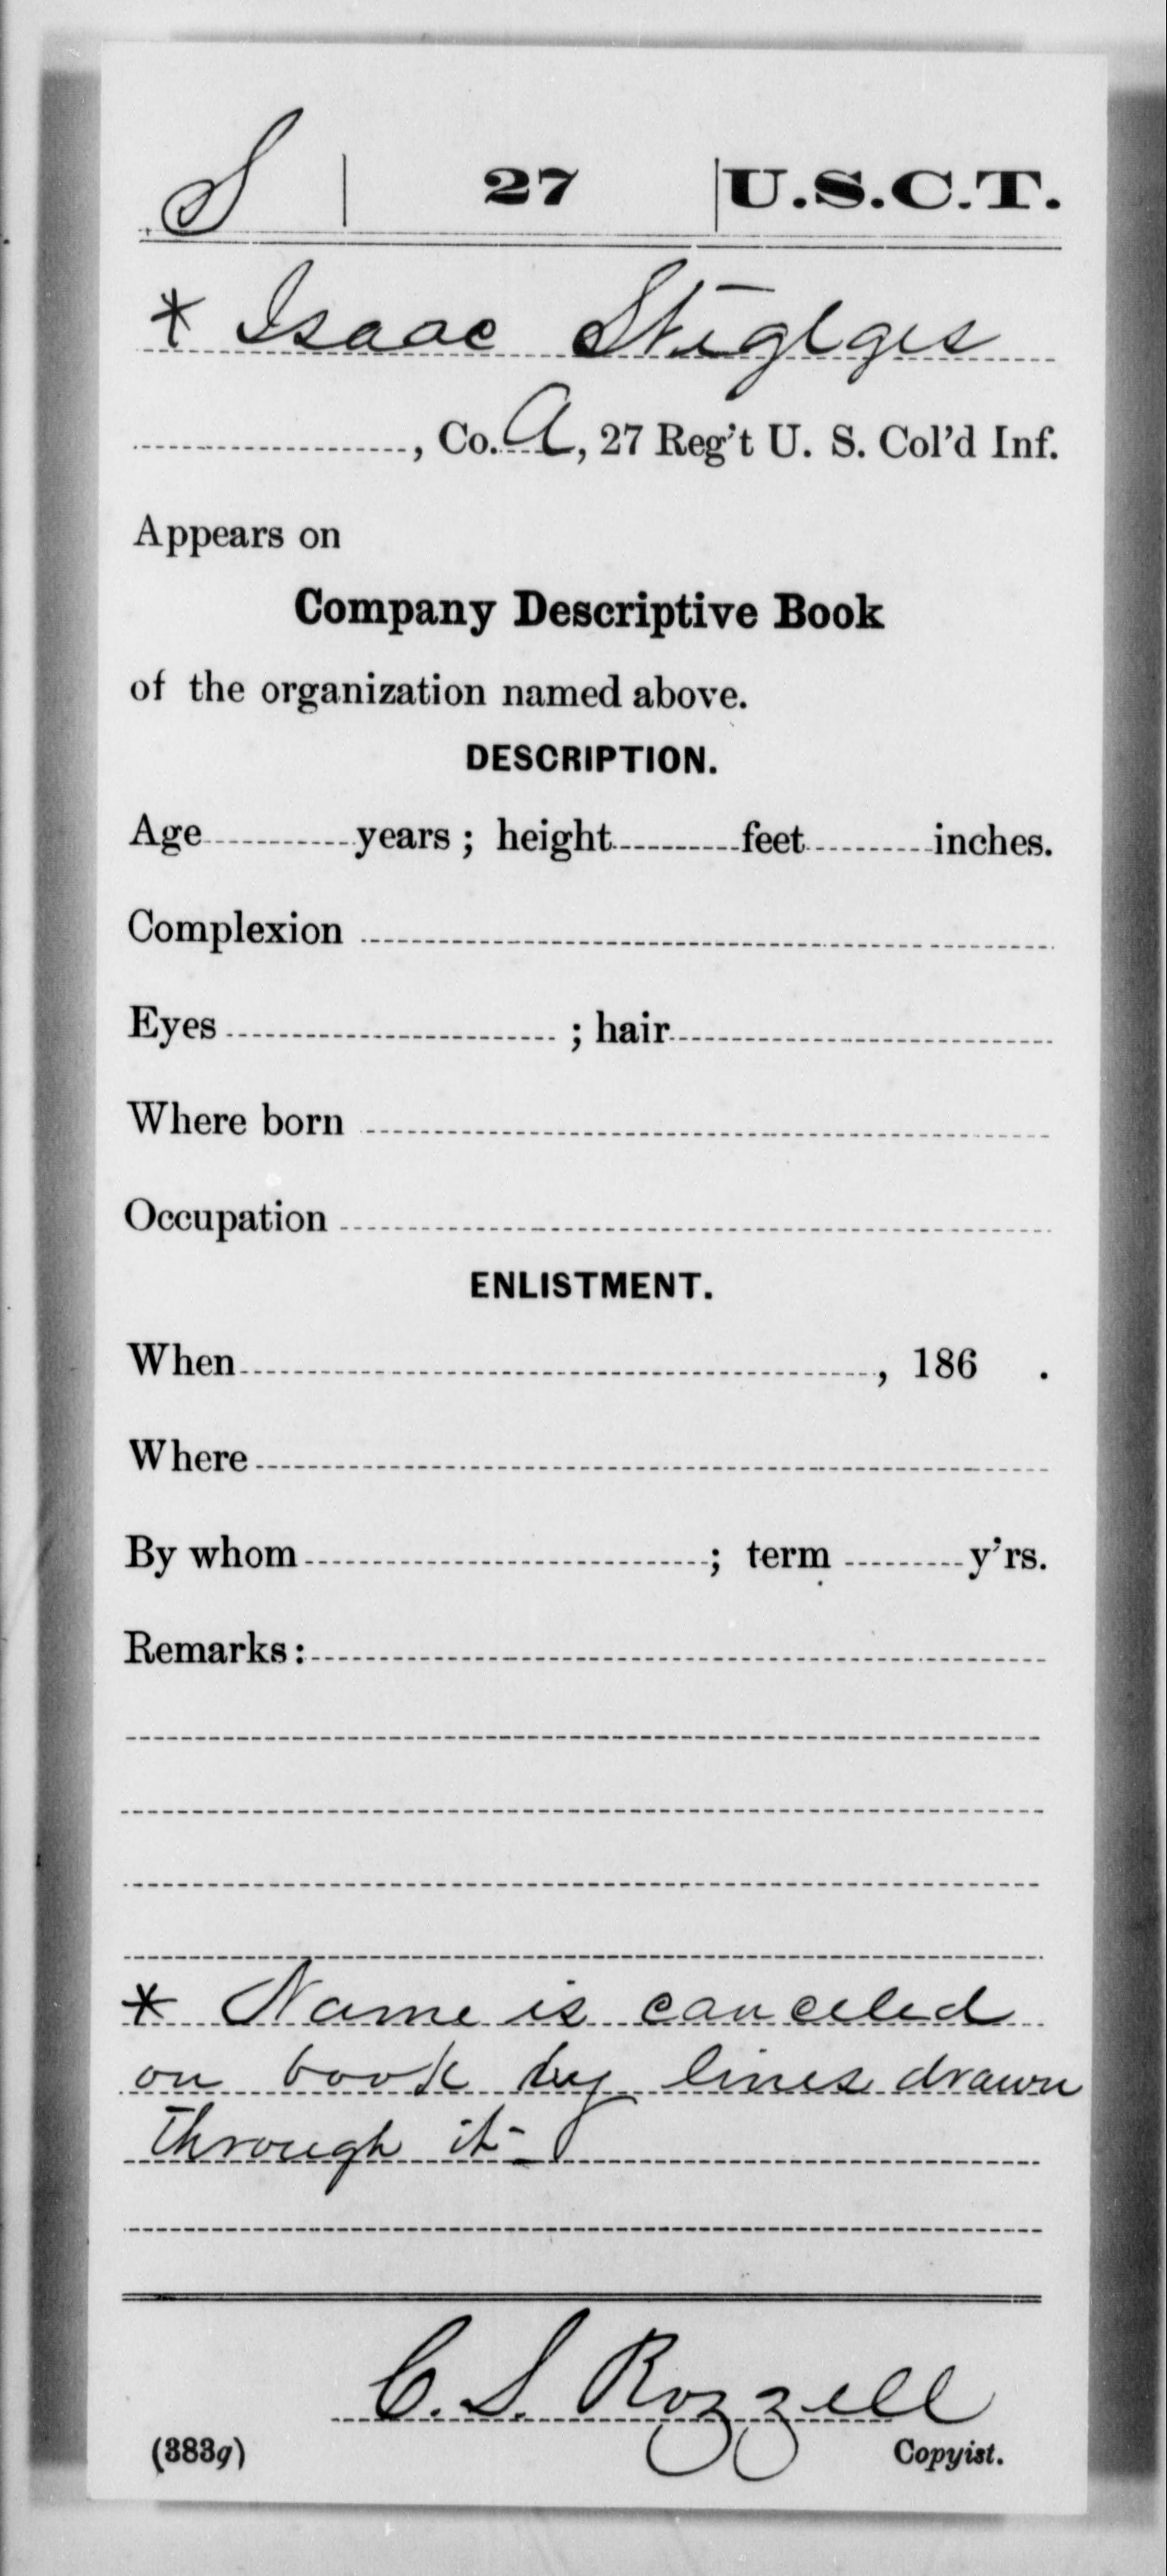 S | 27 | U.S.C.T.
* Isaac Steglges
, Co. A, 27 Reg't U. S. Col'd Inf.
Appears on
Company Descriptive Book
of the organization named above.
DESCRIPTION.
Age years; height feet inches.
Complexion
Eyes ; hair
Where born
Occupation
ENLISTMENT.
When , 186 .
Where
By whom ; term y'rs.
Remarks:
* Name is canceled
on book by lines drawn
through it-
C. S. Rozzell
(383g) Copyist.